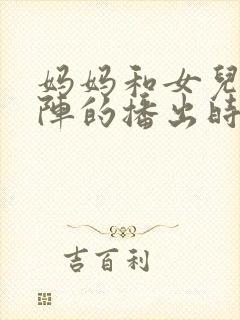 妈妈和女兒
陣的播出時
吉百利